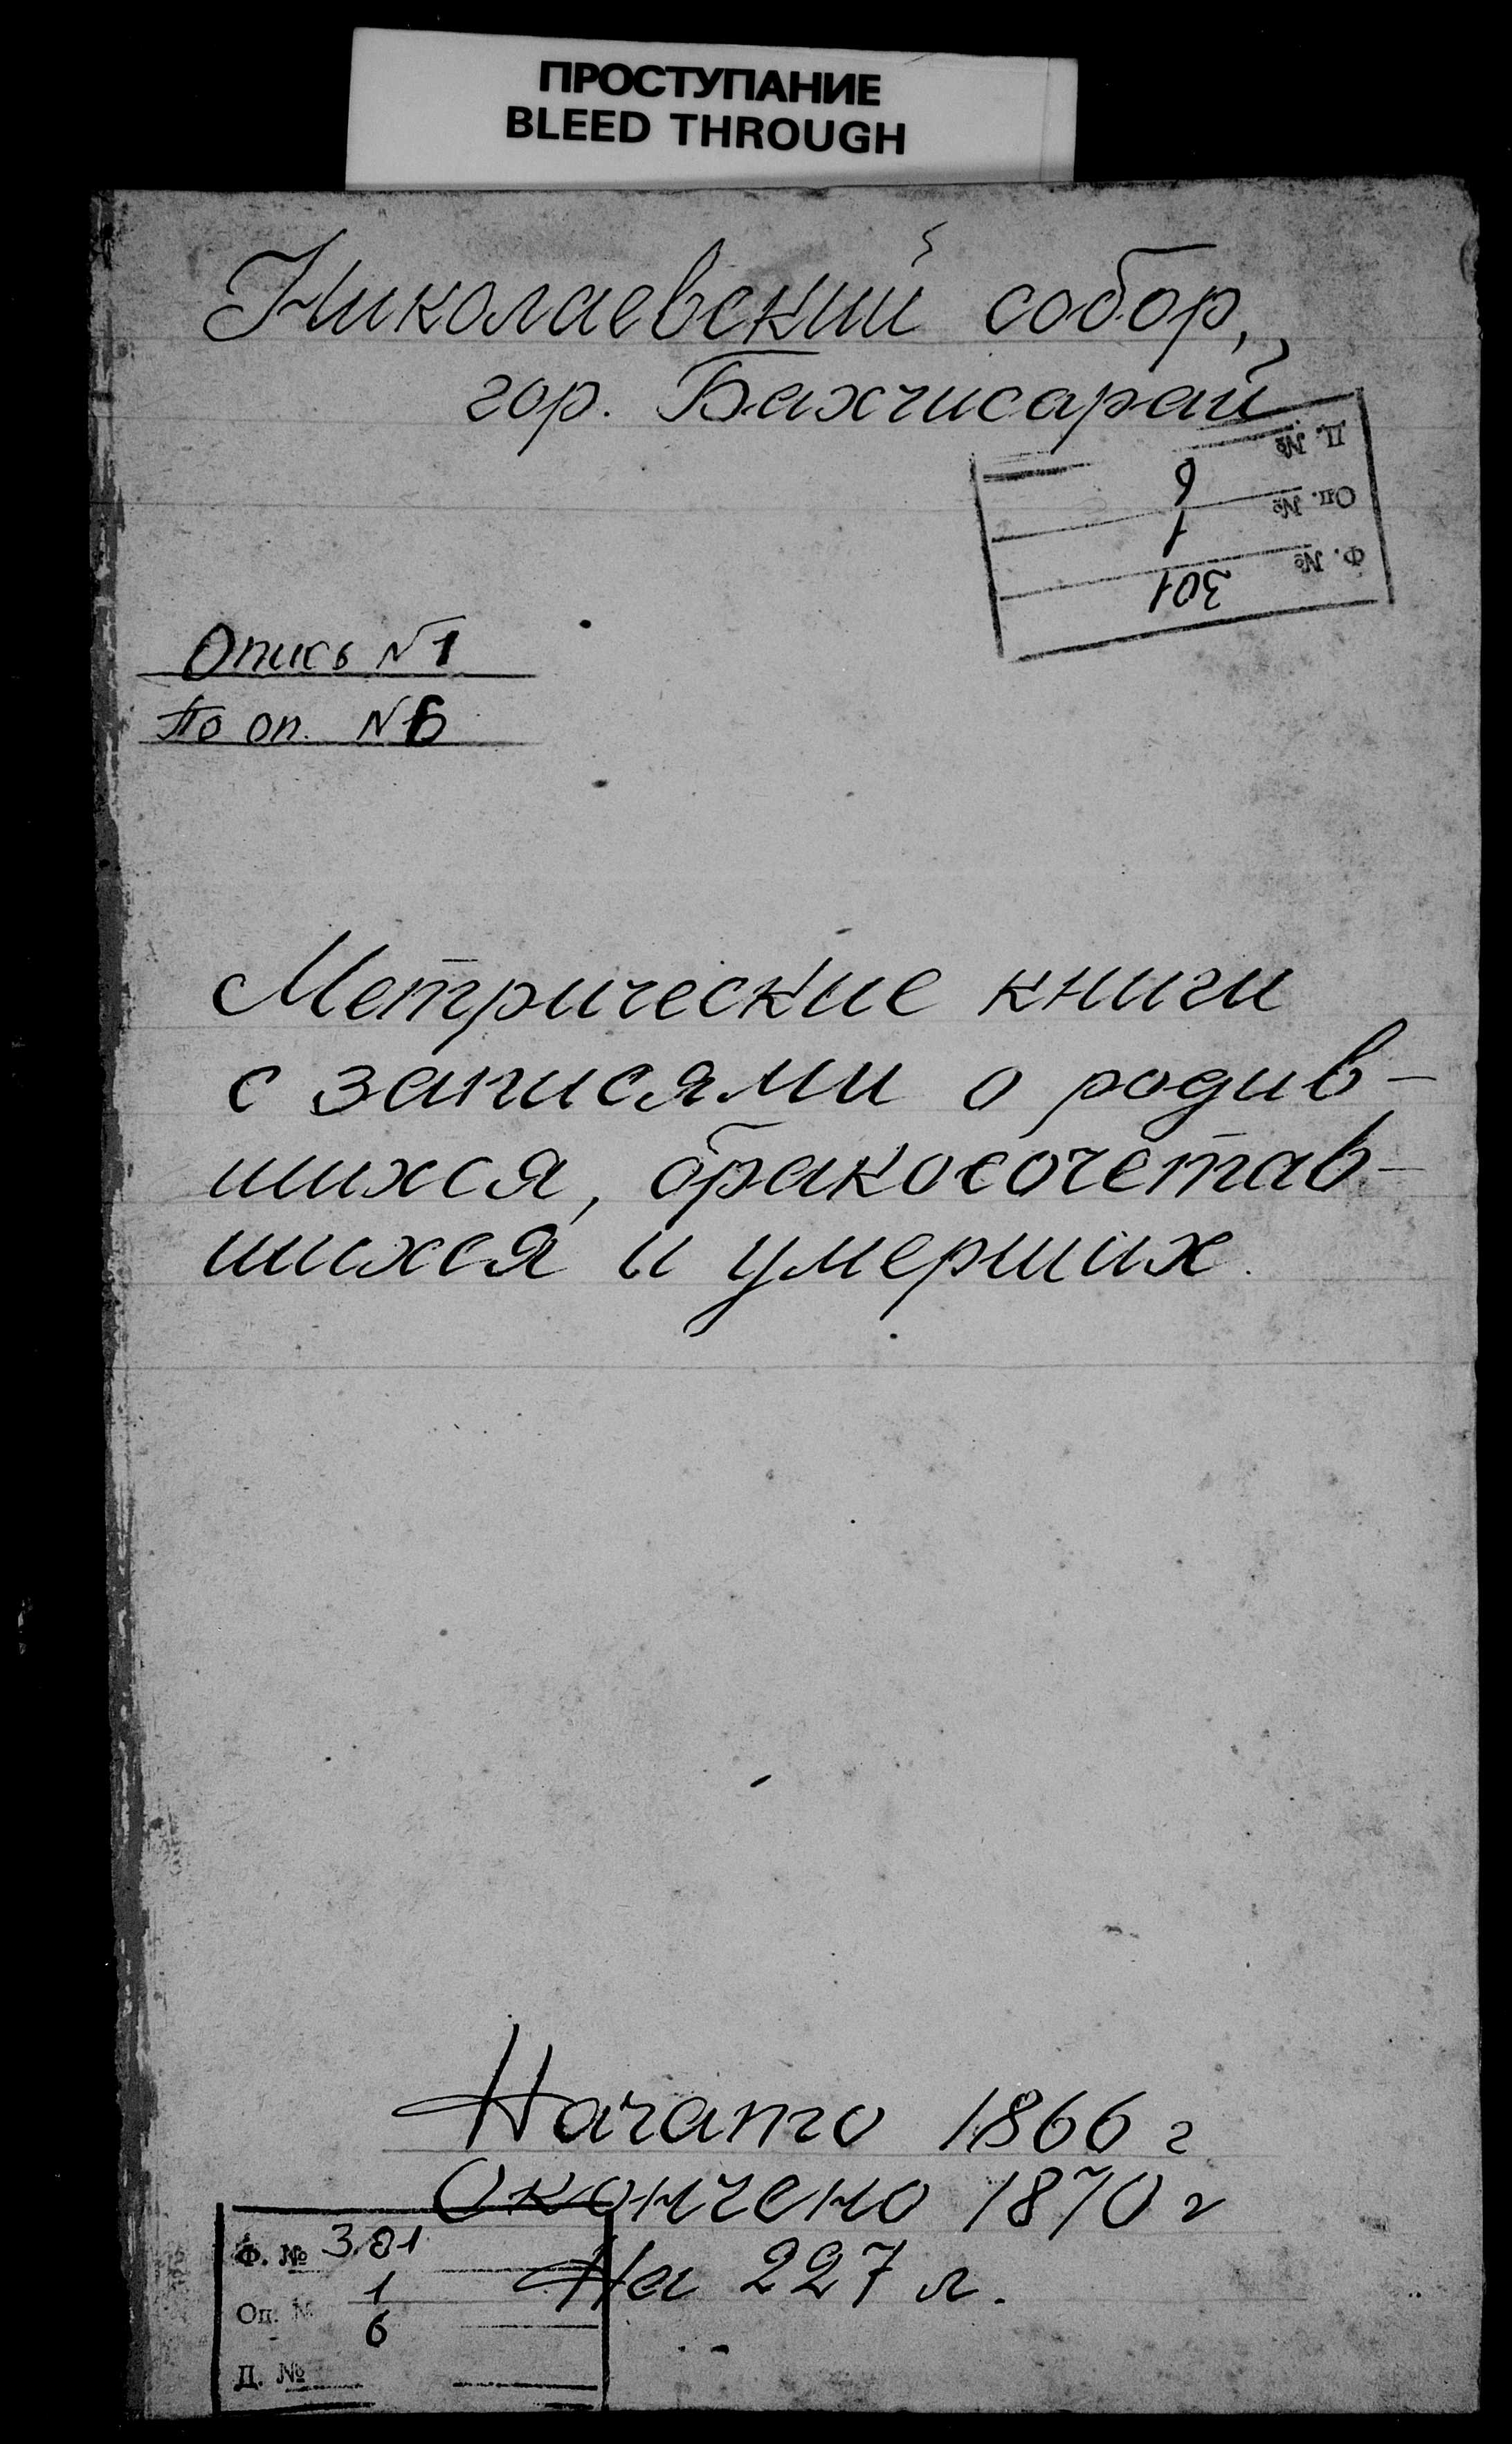 ПРОСТУПАНИЕ
BLEED THROUGH
Николаевский собор,
гор. Бахчисарай
Д. №
6
Оп. №
1
Ф. №
301
Опись №1
По оп. №6
Метрические книги
с записями о родив-
шихся, бракосочетав-
шихся и умерших.
Начато 1866 г
Окончено 1870 г
На 227 л.
Ф. № 301
Оп. № 1
6
Д. №